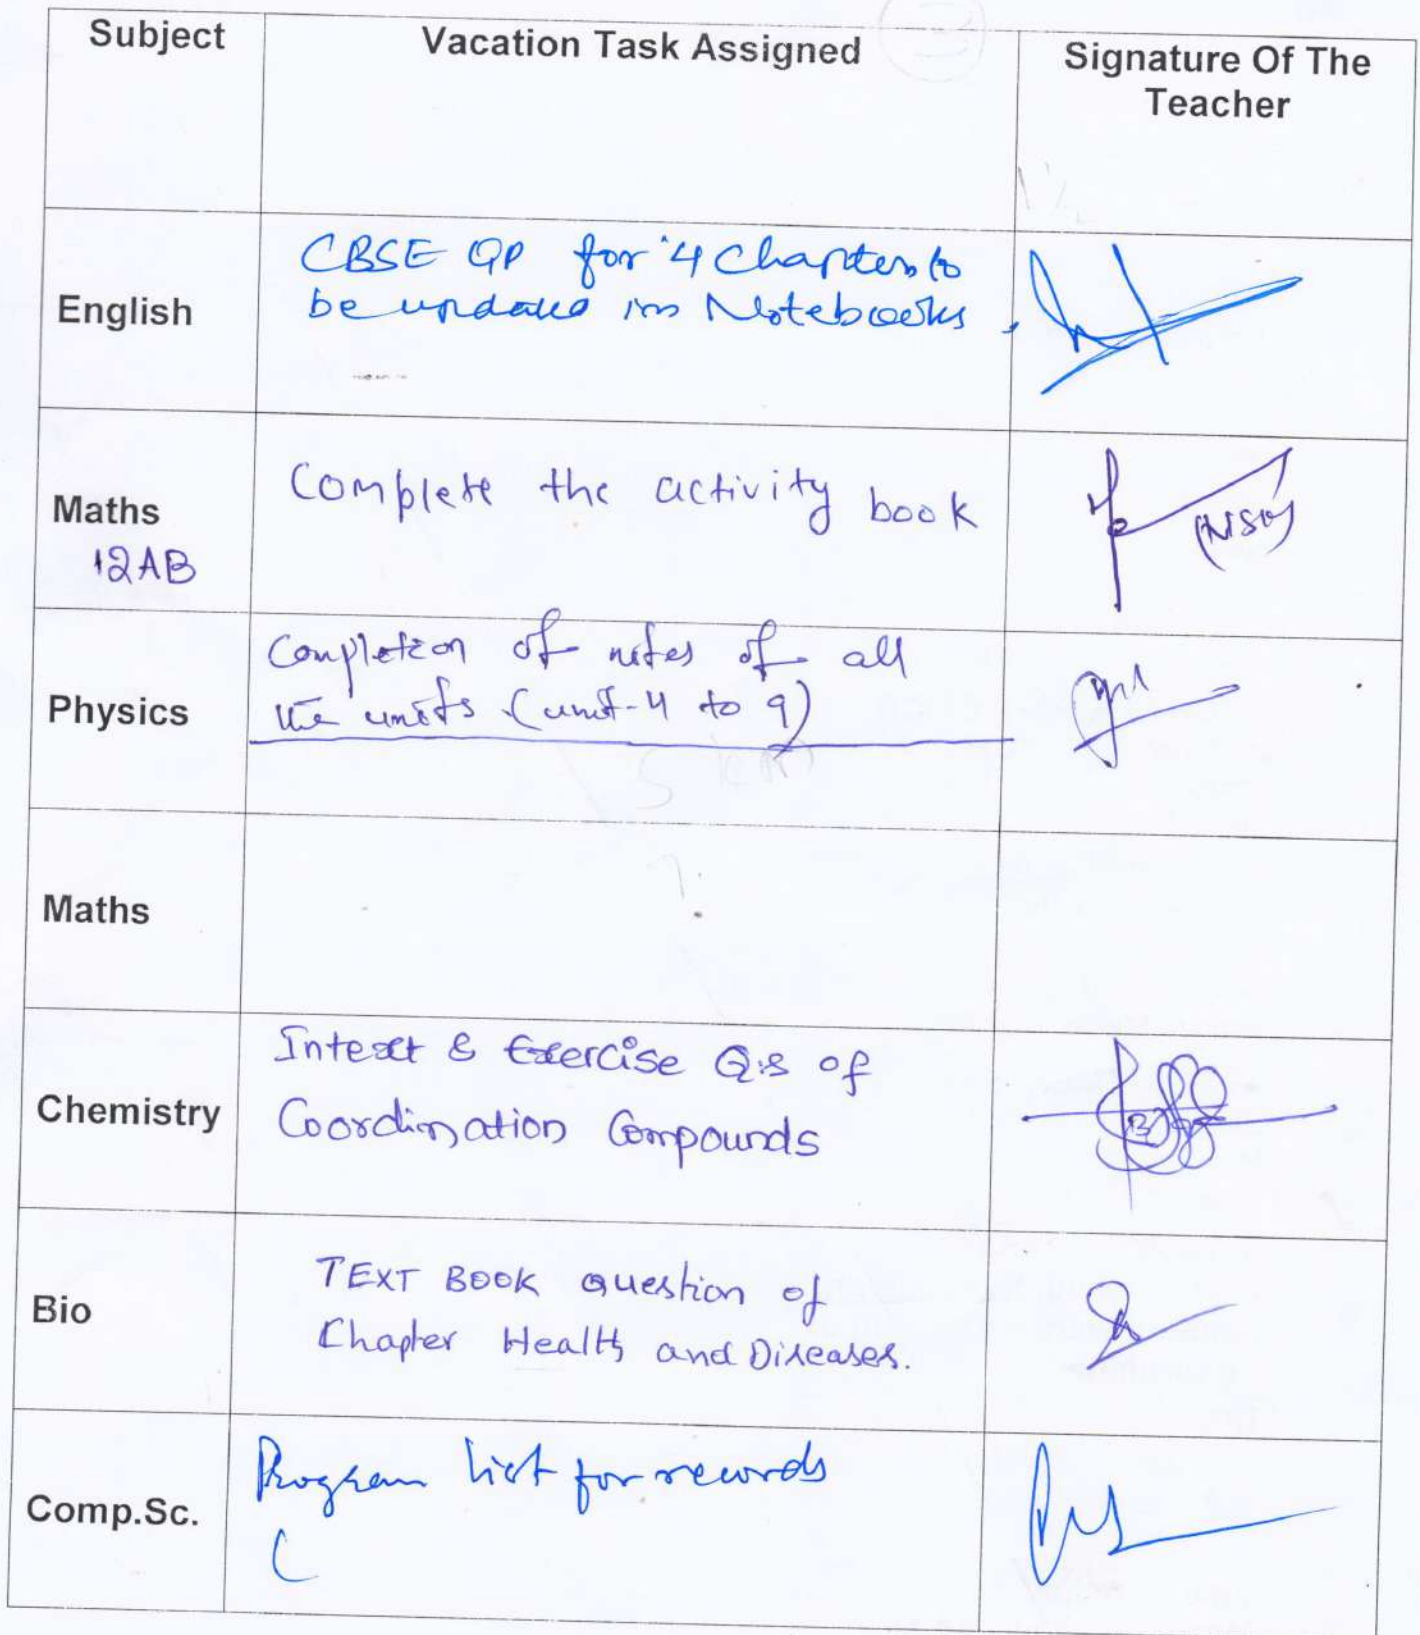 Subject
Vacation Task Assigned
Signature Of The
Teacher
English
CBSE QP for 4 Chapters to
be updated in Notebooks.
Maths
12AB
Complete the activity book
Physics
Completion of notes of all
the units (unit-4 to 9)
Maths
Chemistry
Intext & Exercise Q:s of
Coordination Compounds
Bio
TEXT BOOK Question of
Chapter Health and Diseases.
Comp.Sc.
Program list for records
(